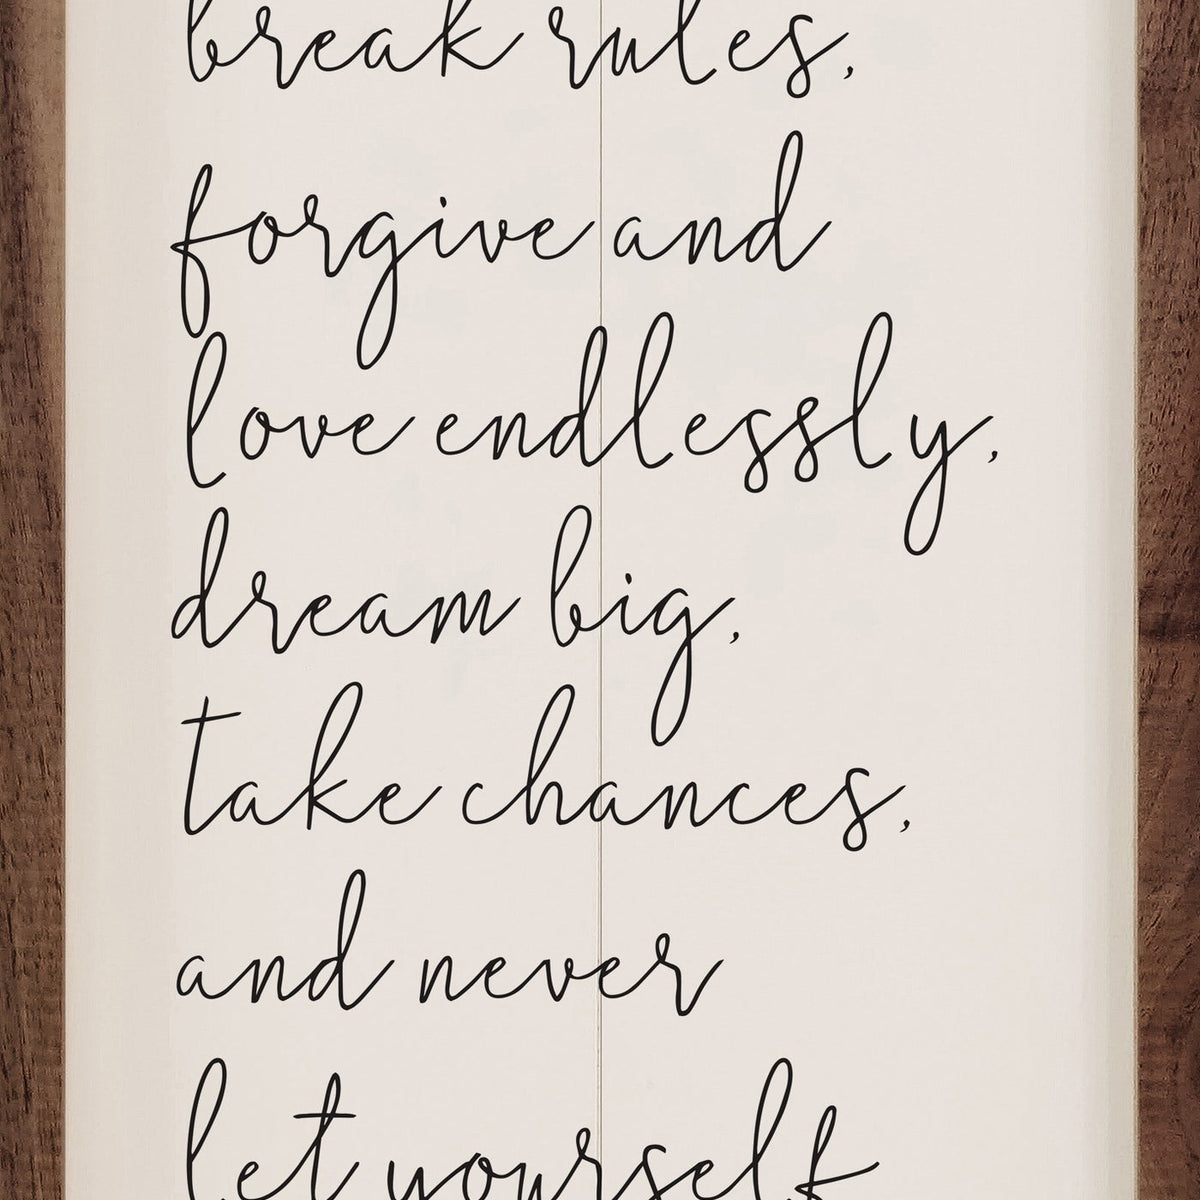 break rules,
forgive and
love endlessly,
dream big,
take chances,
and never
let yourself